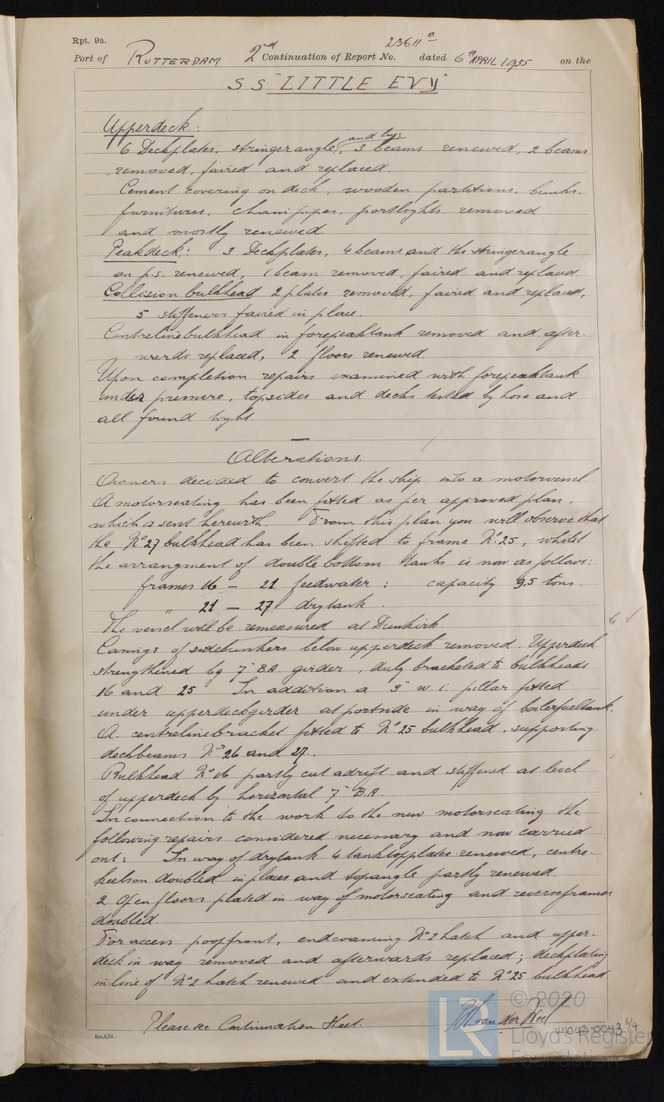 Rpt. 9a.
Port of ROTTERDAM 2nd Continuation of Report No. 23611a dated 6th APRIL 1935 on the
S.S "LITTLE EVY"
Upperdeck:
6 Deckplates, stringerangle, 3 beams and lugs renewed, 2 beams
removed, faired and replaced.
Cement covering on deck, wooden partitions, bunks,
furnitures, chainpipes, portlights removed
and mostly renewed.
Peakdeck: 3 Deckplates, 4 beams and the stringerangle
on p.s. renewed, 1 beam removed, faired and replaced.
Collision bulkhead 2 plates removed, faired and replaced,
5 stiffeners faired in place.
Centrelinebulkhead in forepeaktank removed and after-
wards replaced, 2 floors renewed.
Upon completion repairs examined with forepeaktank
under pressure, topsides and decks tested by hose and
all found tight.
Alterations
Owners decided to convert the ship into a motorvessel
A motorseating has been fitted as per approved plan,
which is sent herewith. From this plan you will observe that
the No 27 bulkhead has been shifted to frame No 25, whilst
the arrangment of double bottom tanks is now as follows:
frames 16 – 21 feedwater; capacity 9.5 tons.
" 21 – 27 drytank.
The vessel will be remeasured at Dunkirk
Casings of sidebunkers below upperdeck removed. Upperdeck
strengthened by 7" B.A. girder, duly bracketed to bulkheads
16 and 25 In addition a 3" w.i. pillar fitted
under upperdeckgirder at portside in way of boilerfueltank.
A centrelinebracket fitted to No 25 bulkhead, supporting
deckbeams Nos 26 and 27.
Bulkhead No 16 partly cut adrift and stiffened at level
of upperdeck by horizontal 7" B.A.
In connection to the work to the new motorseating the
following repairs considered necessary and now carried
out: In way of drytank 4 tanktopplates renewed, centre-
keelson doubled in places and topangle partly renewed.
2 Open floors plated in way of motorseating and reverseframes
doubled
For access poopfront, endcoaming No 2 hatch and upper-
deck in way removed and afterwards replaced; deckplating
in line of No 2 hatch renewed and extended to No 25 bulkhead
Please see Continuation Sheet.
LR
© 2020
Lloyd's Register
Foundation